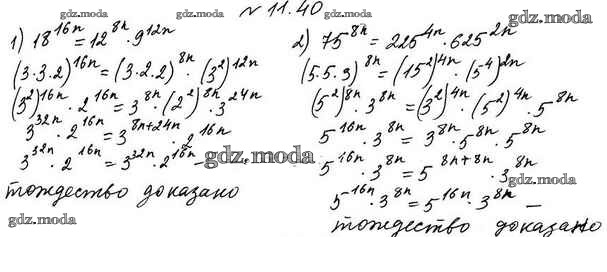 № 11.40
1) 18^{16n} = 12^{8n} · 9^{12n}
(3·3·2)^{16n} = (3·2·2)^{8n} · (3^2)^{12n}
(3^2)^{16n} · 2^{16n} = 3^{8n} · (2^2)^{8n} · 3^{24n}
3^{32n} · 2^{16n} = 3^{8n+24n} · 2^{16n}
3^{32n} · 2^{16n} = 3^{32n} · 2^{16n} –
тождество доказано
2) 75^{8n} = 225^{4n} · 625^{2n}
(5·5·3)^{8n} = (15^2)^{4n} · (5^4)^{2n}
(5^2)^{8n} · 3^{8n} = (3^2)^{4n} · (5^2)^{4n} · 5^{8n}
5^{16n} · 3^{8n} = 3^{8n} · 5^{8n} · 5^{8n}
5^{16n} · 3^{8n} = 5^{8n+8n} · 3^{8n}
5^{16n} · 3^{8n} = 5^{16n} · 3^{8n} –
тождество доказано
gdz.moda
gdz.moda
gdz.moda
gdz.moda
gdz.moda
gdz.moda
gdz.moda
gdz.moda
gdz.moda